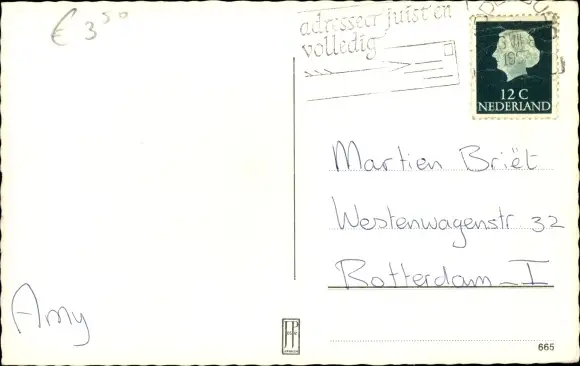 € 3⁵⁰
adresseer juist en
volledig
12 C
NEDERLAND
Martien Briët
Westenwagenstr 32
Rotterdam - I
Amy
665